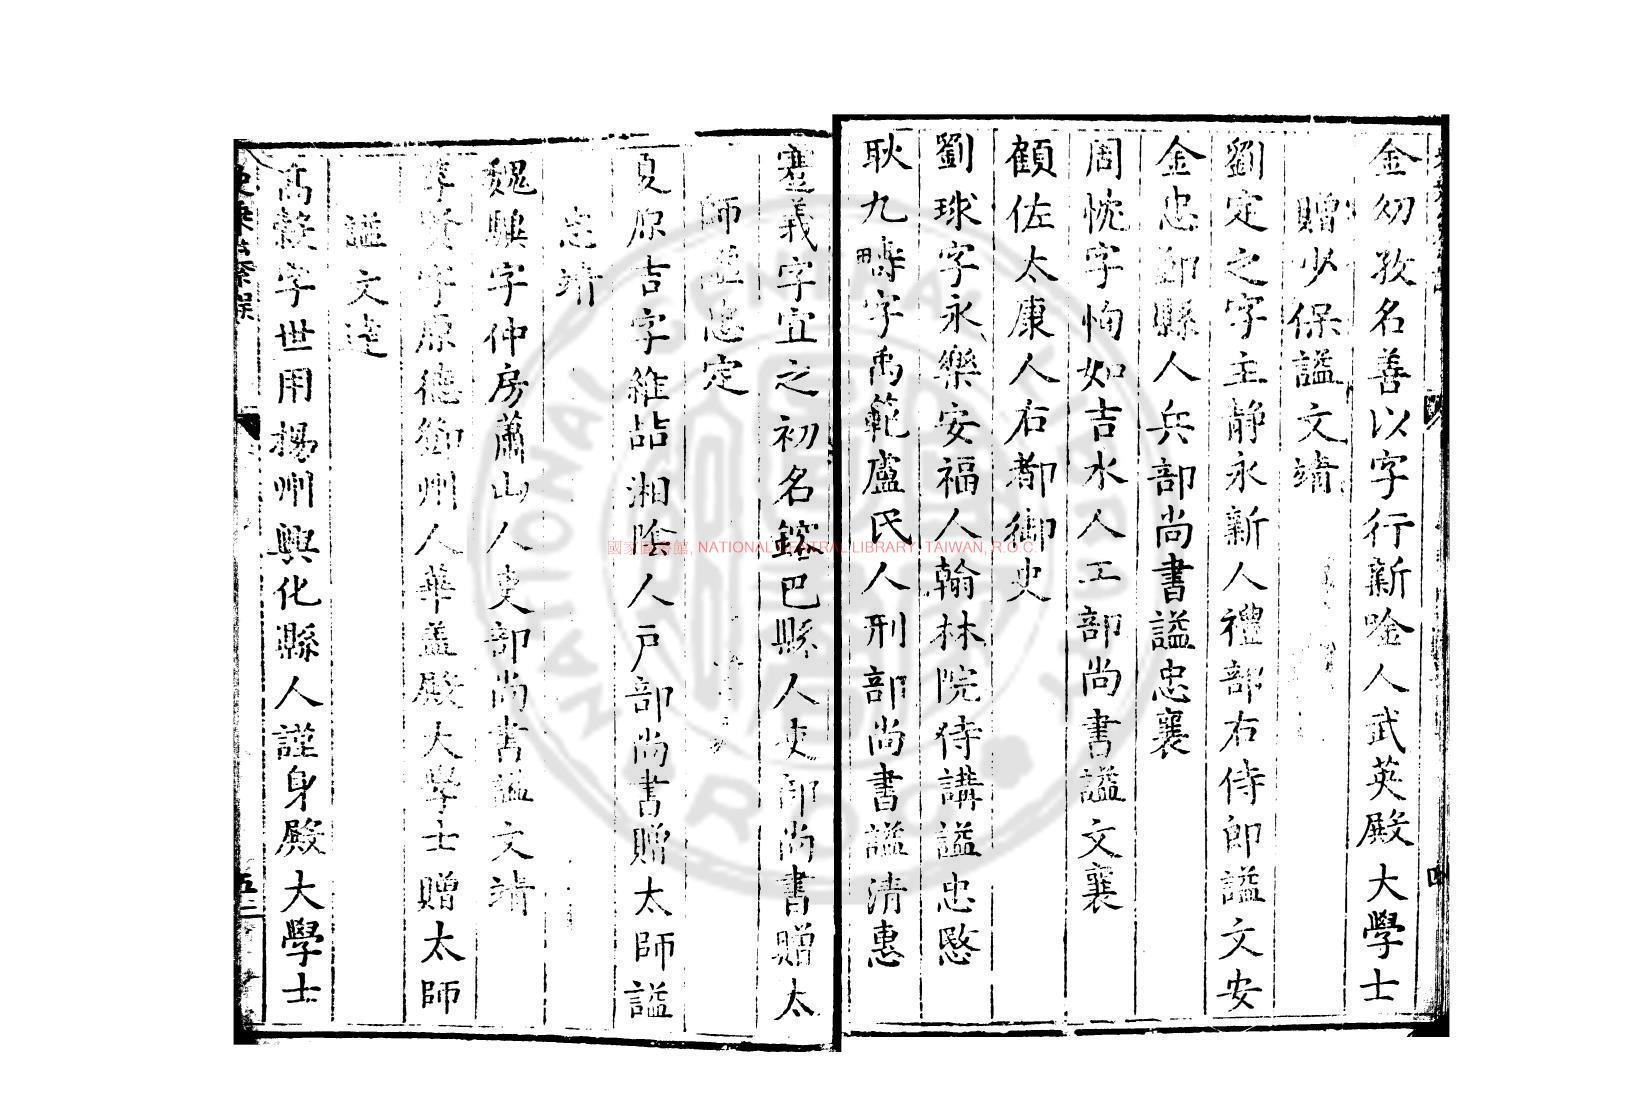 金幼孜名善以字行新唫人武英殿大學士
贈少保謚文靖
劉定之字主靜永新人禮部右侍郎謚文安
金忠鄞縣人兵部尚書謚忠襄
周忱字恂如吉水人工部尚書謚文襄
顧佐太康人右都御史
劉球字永樂安福人翰林院侍講謚忠愍
耿九疇字禹範盧氏人刑部尚書謚清惠
蹇義字宜之初名瑢巴縣人吏部尚書贈太
師謚忠定
夏原吉字維喆湘陰人戶部尚書贈太師謚
忠靖
魏驥字仲房蕭山人吏部尚書謚文靖
李賢字原德鄧州人華蓋殿大學士贈太師
謚文達
高穀字世用楊州興化縣人謹身殿大學士
國家圖書館, NATIONAL CENTRAL LIBRARY, TAIWAN, R.O.C
NATIONAL CENTRAL LIBRARY
R.O.C